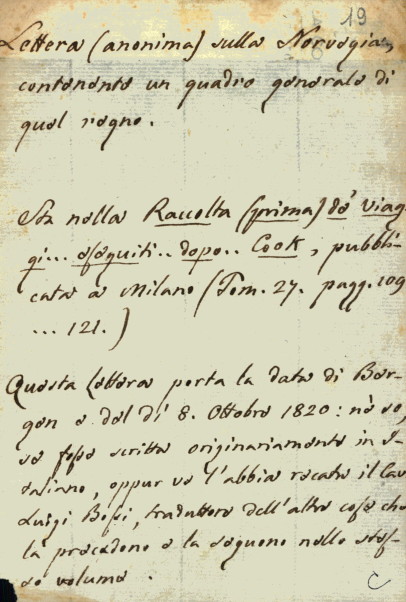 19
Lettera (anonima) sulla Norvegia,
contenente un quadro generale di
quel regno.
Sta nella Raccolta (prima) de' Viag-
gi... eseguiti.. dopo.. Cook, pubbli-
cata a Milano (Tom. 27. pagg. 109
... 121.)
Questa Lettera porta la data di Ber-
gen e del dì 8. Ottobre 1820: nè so,
se fosse scritta originariamente in I-
taliano, oppur ve l'abbia recata il Cav
Luigi Bossi, traduttore dell'altre cose che
la precedono e la seguono nello stes-
so volume.